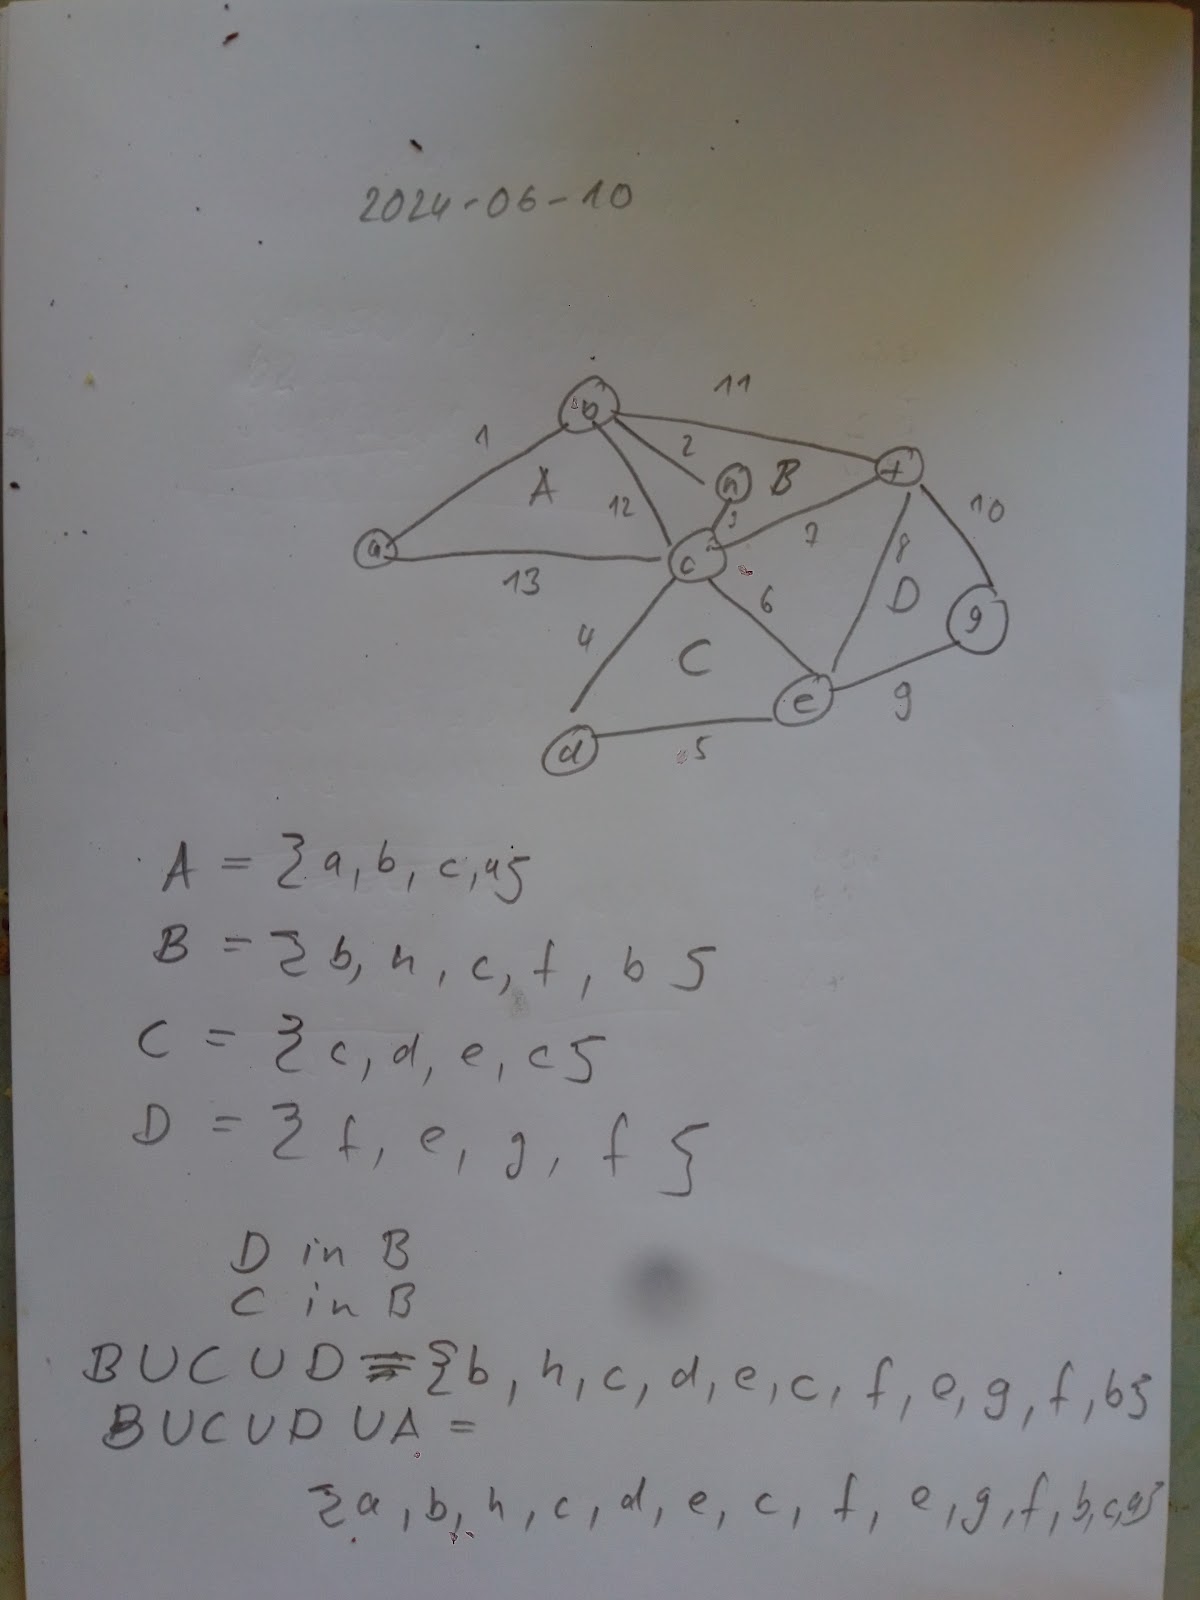 2024-06-10
11
b
1
2
f
A
h
B
10
12
a
3
7
8
c
13
6
D
g
4
C
e
9
d
5
A = {a, b, c, a}
B = {b, h, c, f, b}
C = {c, d, e, c}
D = {f, e, g, f}
D in B
C in B
B U C U D = {b, h, c, d, e, c, f, e, g, f, b}
B U C U D U A =
{a, b, h, c, d, e, c, f, e, g, f, b, c, a}